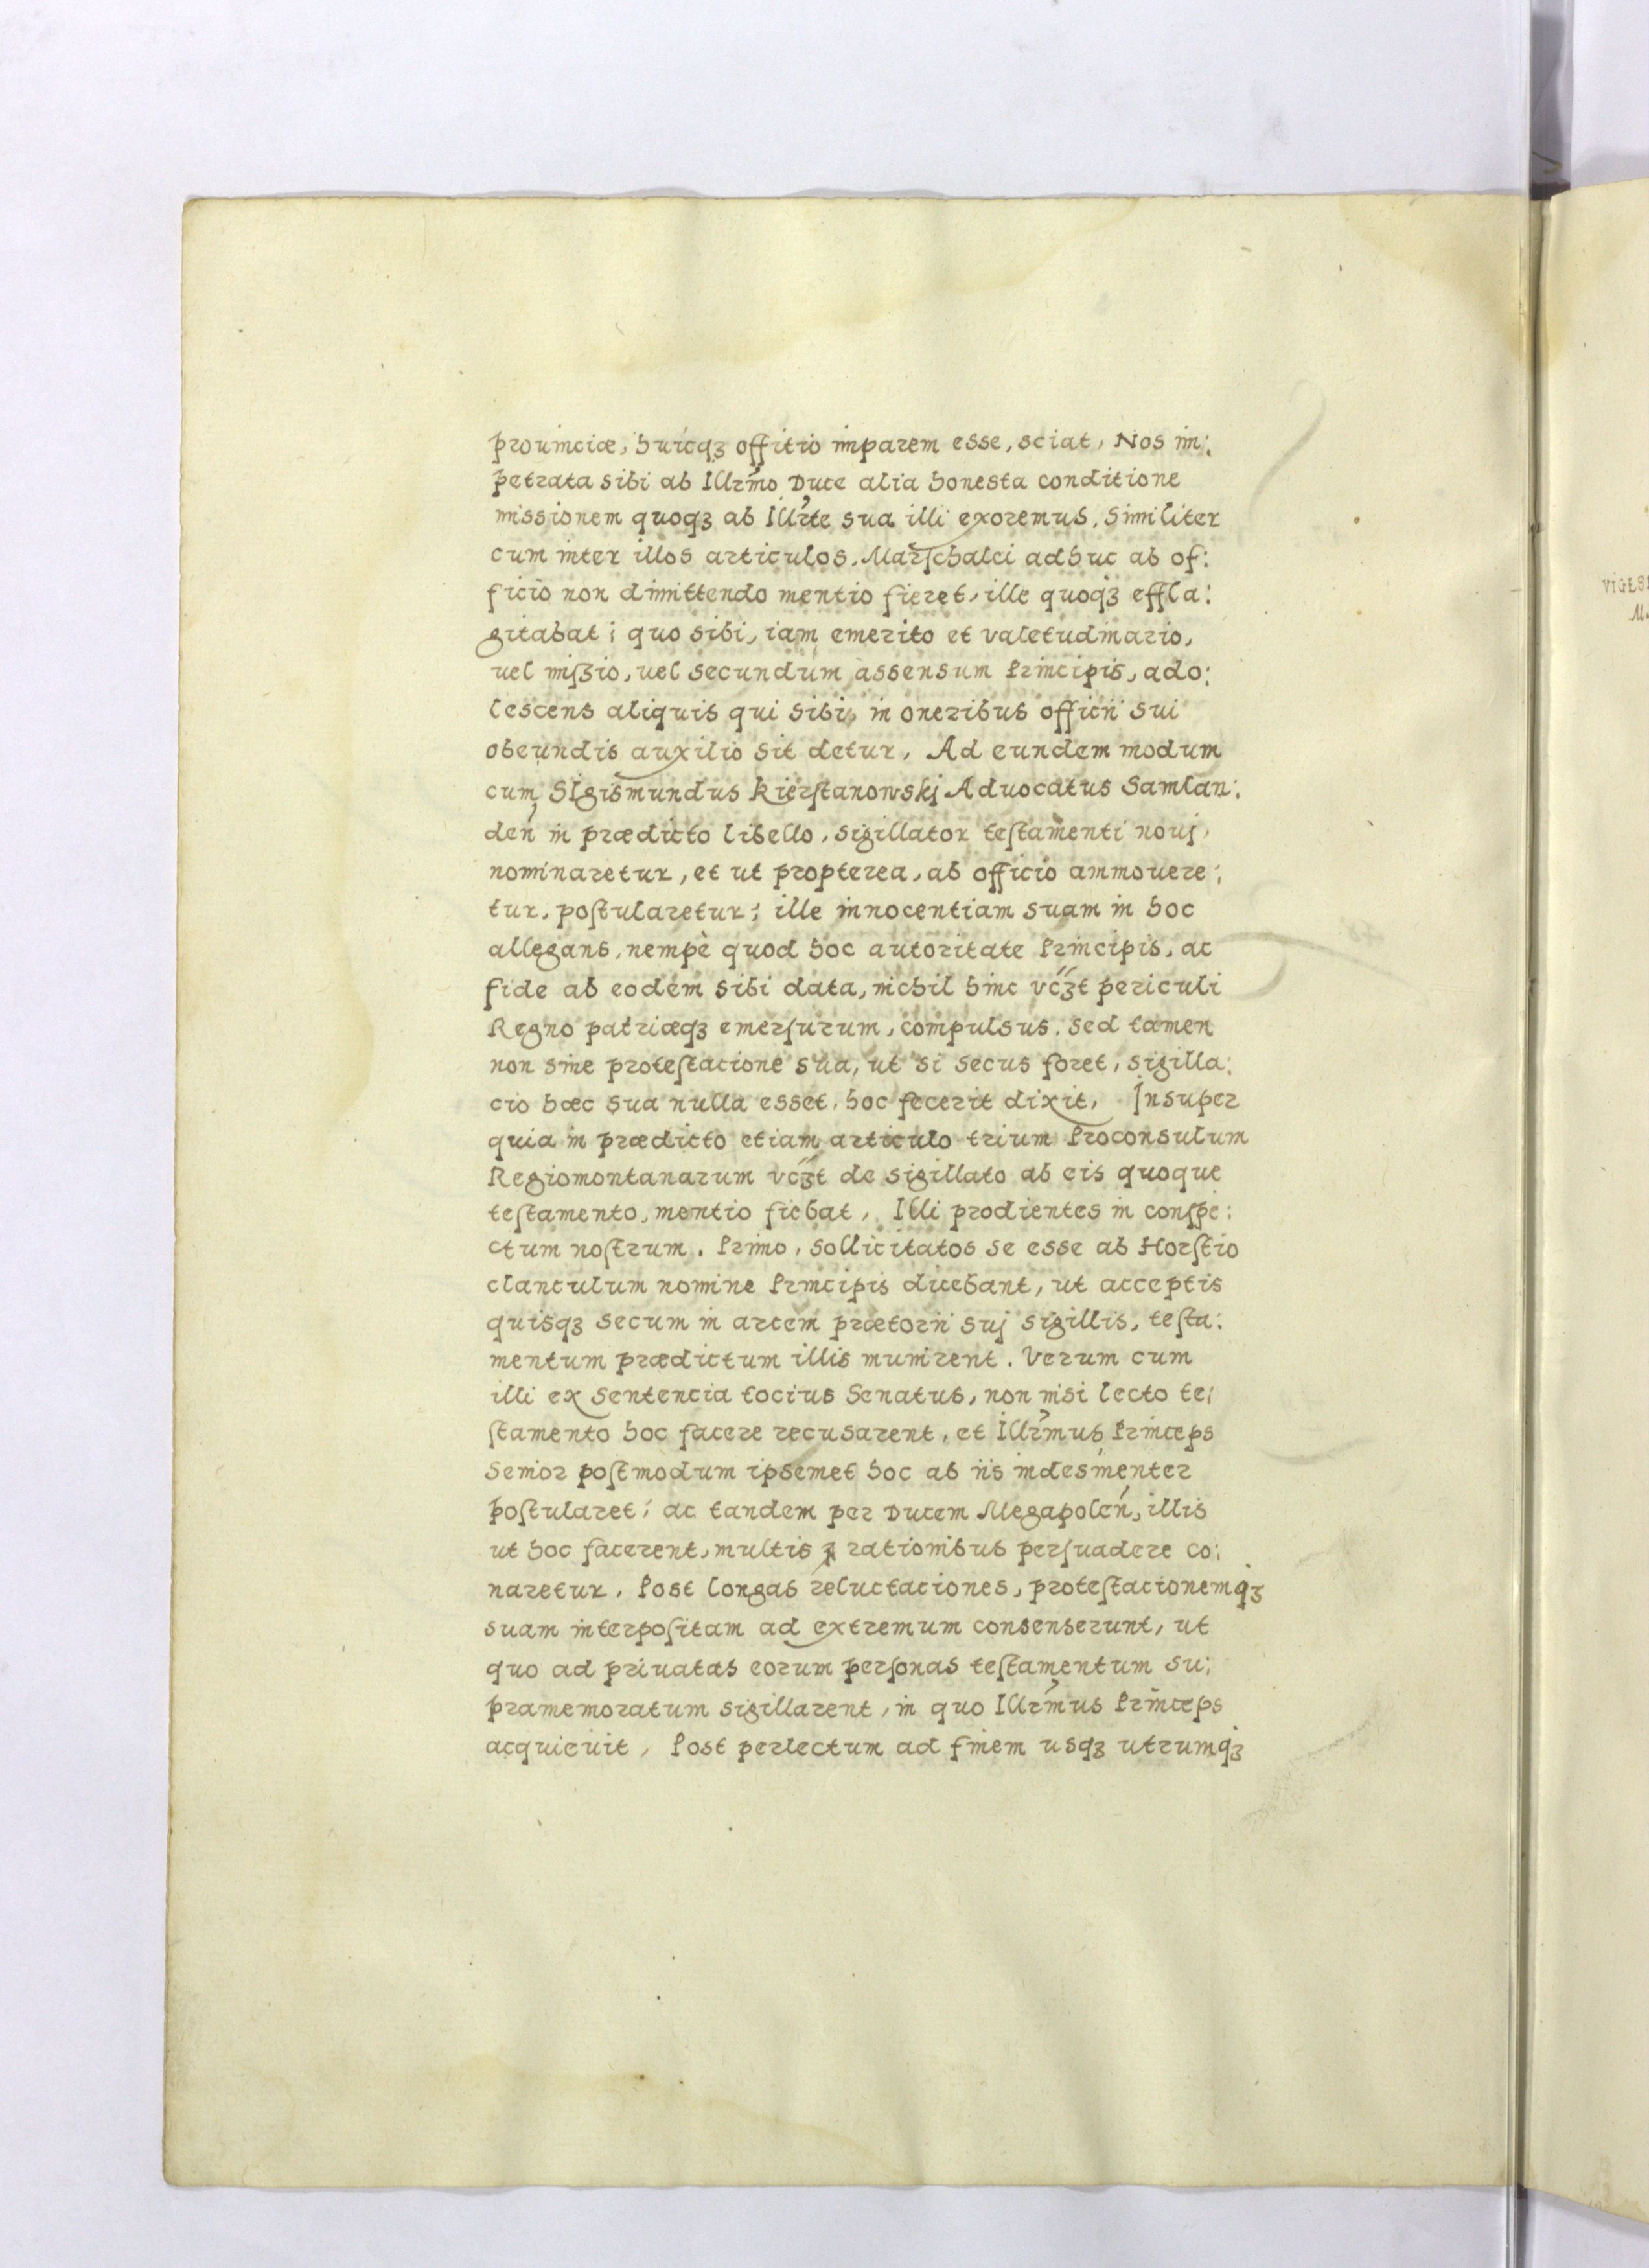 prouinciæ, huicqꝫ offitio imparem esse, sciat, Nos im:
petrata sibi ab Illr̃mo Duce alia honesta conditione
missionem quoqꝫ ab Illr̃te sua illi exoremus. Similiter
cum inter illos articulos. Marſchalci adhuc ab of:
ficio non dimittendo mentio fieret, ille quoqꝫ effla:
gitabat; quo sibi, iam emerito et valetudinario,
uel miſsio, uel secundum assensum Principis, ado:
lescens aliquis qui sibi, in oneribus officii sui
obeundis auxilio sit detur, Ad eundem modum
cum Sigismundus Kierſtanowskj Aduocatus Samlan:
deń in prædicto libello, sigillator teſtamenti nouj,
nominaretur, et ut propterea, ab officio ammouere:
tur, poſtularetur; ille innocentiam suam in hoc
allegans, nempè quod hoc autoritate Principis, ac
fide ab eodem sibi data, nichil hinc vcꝫt periculi
Regno patriæqꝫ emerſurum, compulsus. sed tamen
non sine proteſtacione sua, ut si secus foret, sigilla:
cio hæc sua nulla esset, hoc fecerit dixit, Insuper
quia in prædicto etiam articulo trium Proconsulum
Regiomontanarum vcꝫt de sigillato ab eis quoque
teſtamento, mentio fiebat, Illi prodientes in conſpe:
ctum noſtrum. Primo, sollicitatos se esse ab Horſtio
clanculum nomine Principis dicebant, ut acceptis
quisqꝫ secum in arcem prætorii suj sigillis, teſta:
mentum prædictum illis munirent. Verum cum
illi ex sentencia tocius Senatus, non nisi lecto te:
ſtamento hoc facere recusarent, et Illr̃mus Princeps
Senior poſtmodum ipsemet hoc ab iis indesinenter
poſtularet; ac tandem per Ducem Megapoleń, illis
ut hoc facerent, multis rationibus perſuadere co:
naretur. Post longas reluctaciones, proteſtacionemqꝫ
suam interpoſitam ad extremum consenserunt, ut
quo ad priuatas eorum perſonas teſtamentum su:
pramemoratum sigillarent, in quo Illr̃mus Princeps
acquieuit, Post perlectum ad finem usqꝫ utrumqꝫ